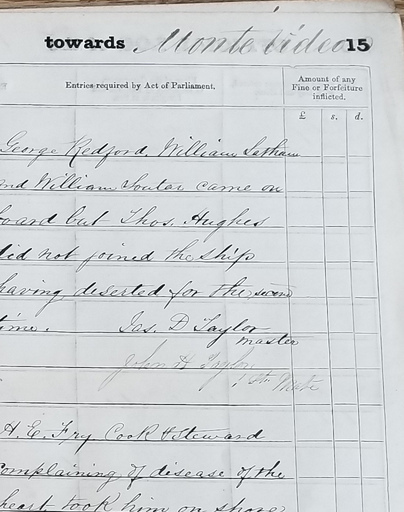 towards Monte Video 15
Entries required by Act of Parliament.
Amount of any
Fine or Forfeiture
inflicted.
£ s. d.
George Redford, William Latham
and William Soutar came on
board but Thos. Hughes
did not joined the ship
having deserted for the second
time. Jas. D Taylor
master
John H Taylor
1st Mate
H. E. Fry Cook & Steward
Complaining of disease of the
heart took him on shore